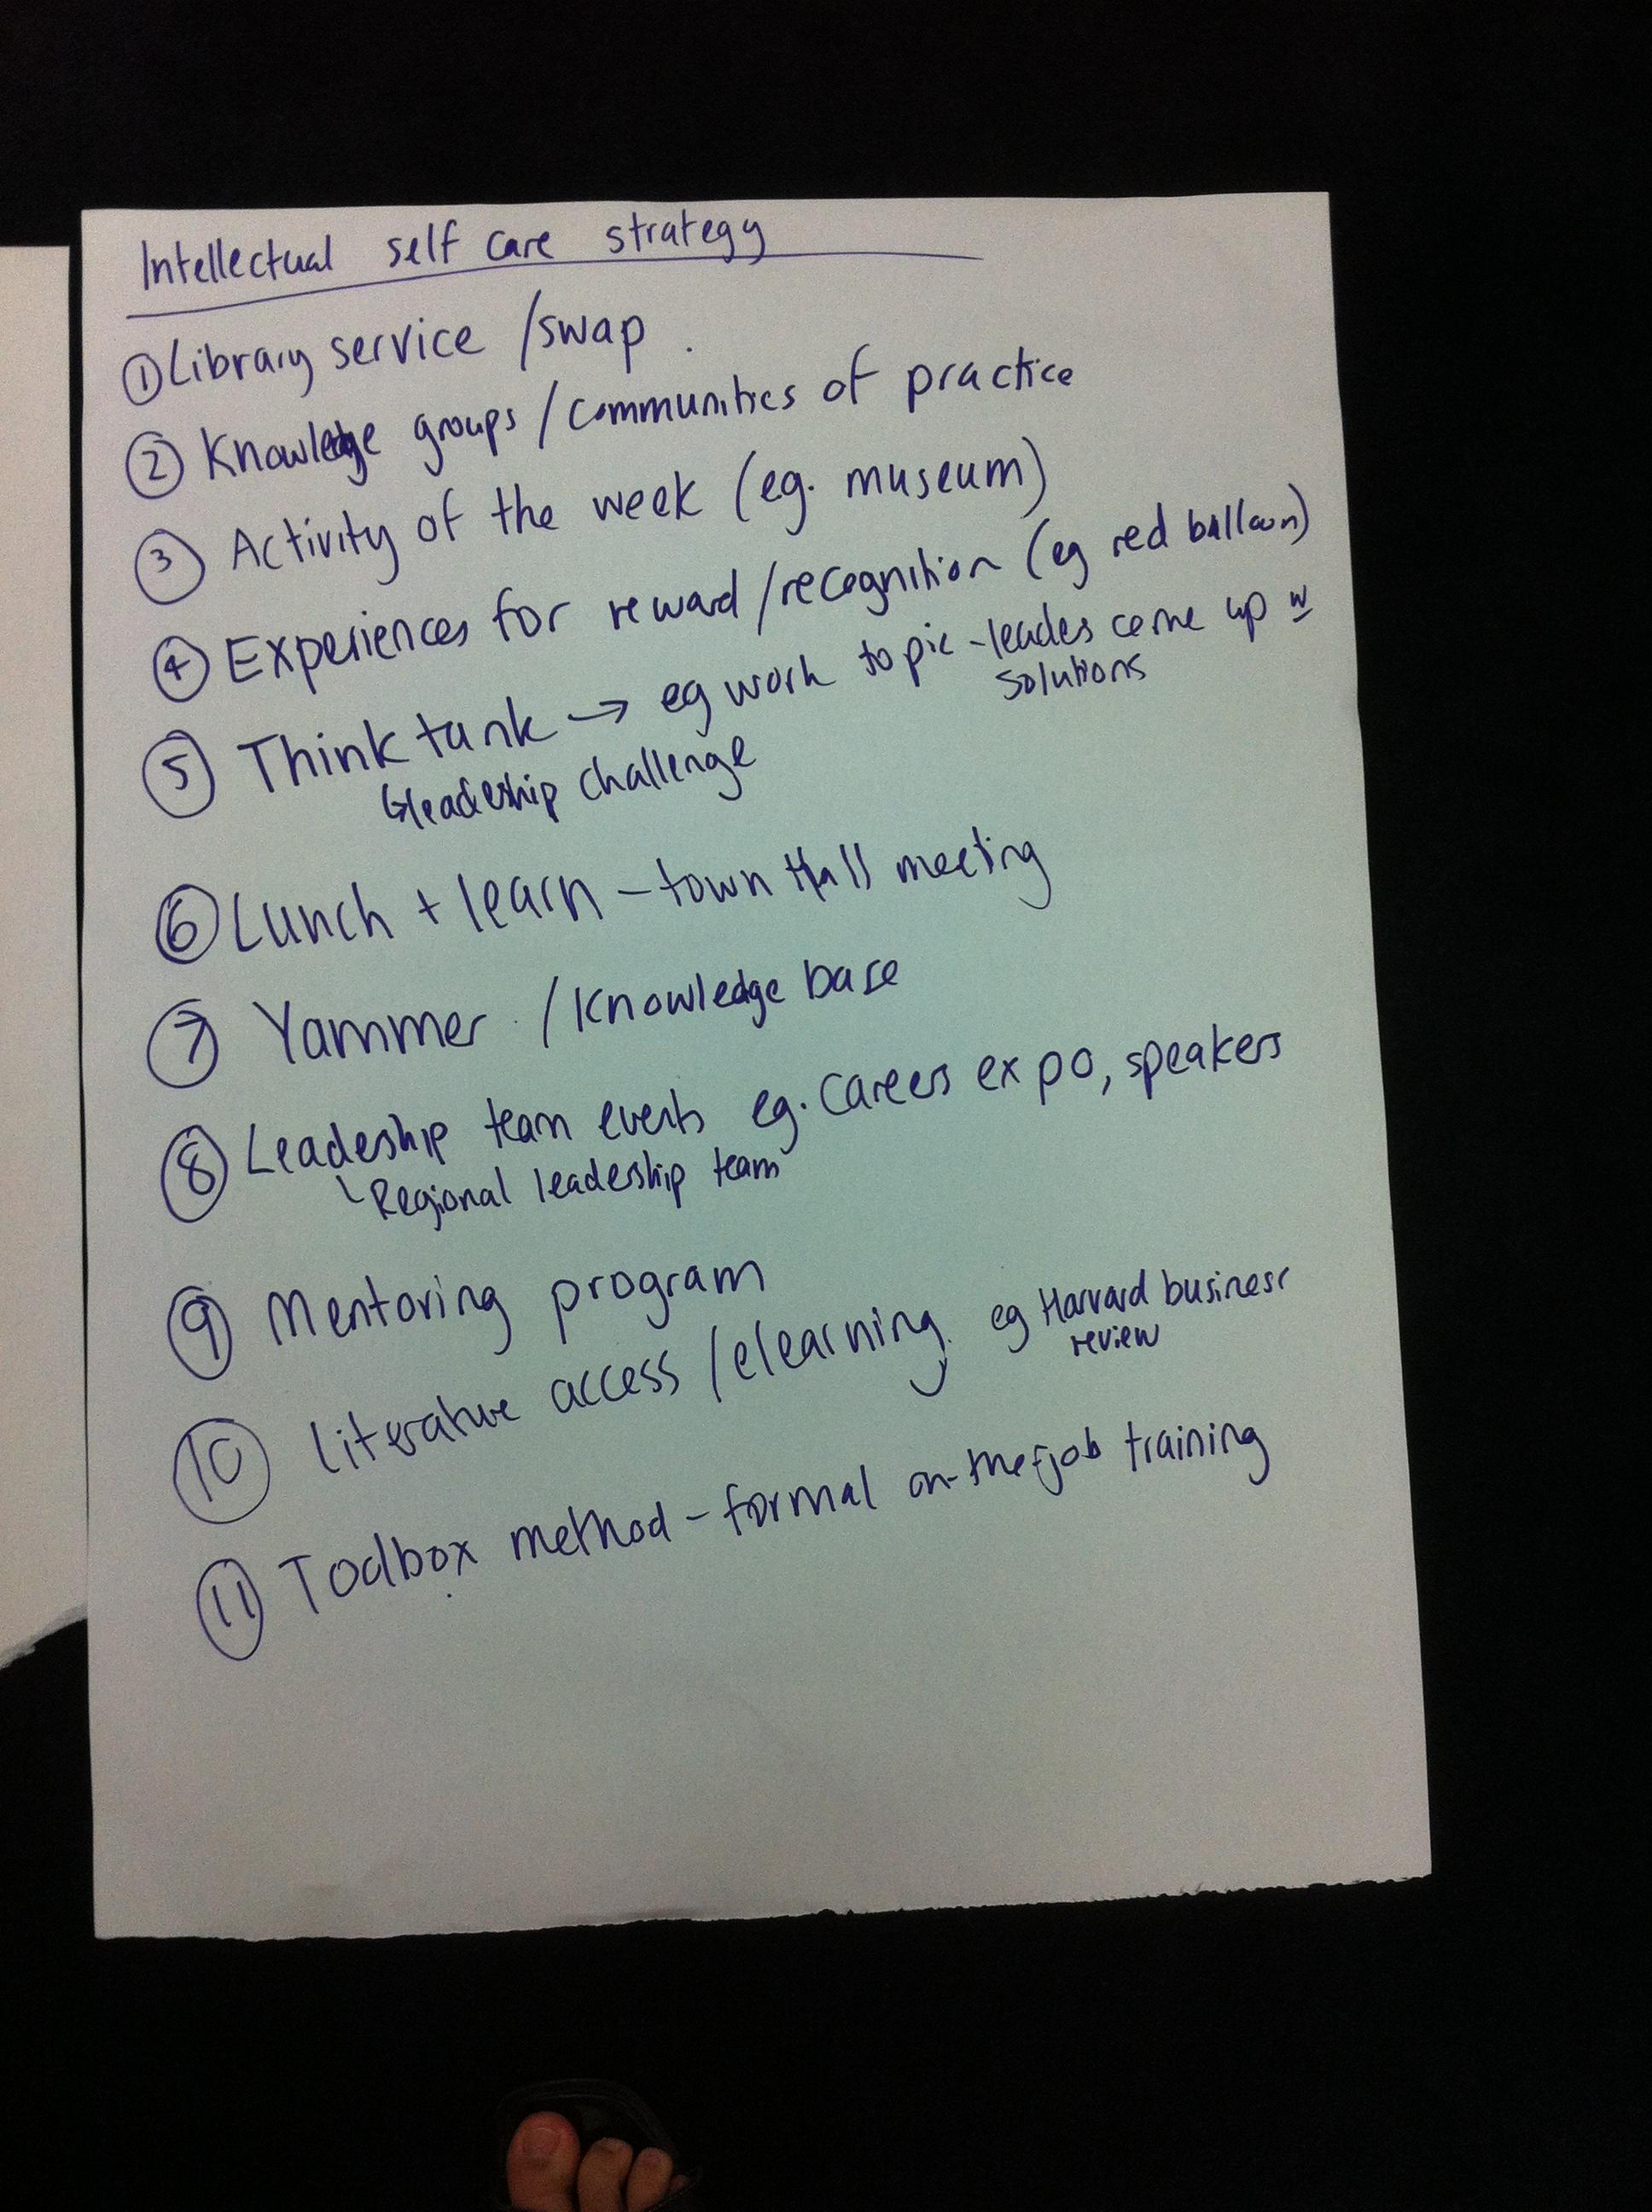 Intellectual self care strategy
① Library service / swap
② Knowledge groups / communities of practice
③ Activity of the week (eg. museum)
④ Experiences for reward / recognition (eg red balloon)
⑤ Think tank → eg work topic - leades come up w
solutions
↳ leadership challenge
⑥ Lunch + learn - town Hall meeting
⑦ Yammer / Knowledge base
⑧ Leadership team events eg. Careers expo, speakers
└ Regional leadership team
⑨ Mentoring program
⑩ literature access / elearning eg Harvard business
review
⑪ Toolbox method - formal on-the-job training